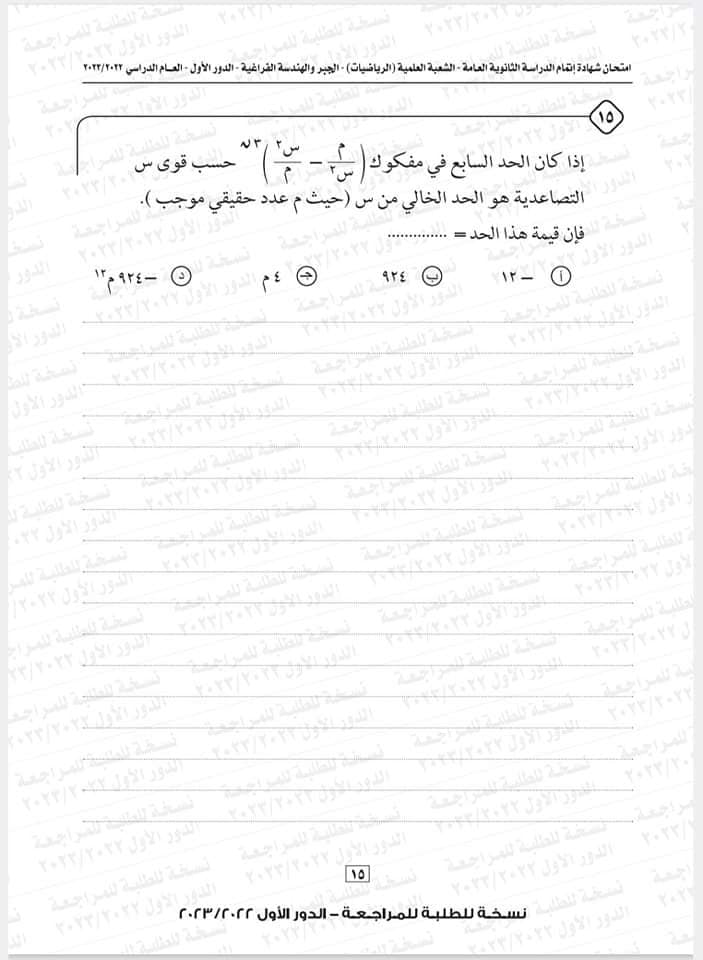 امتحان شهادة إتمام الدراسة الثانوية العامة - الشعبة العلمية (الرياضيات) - الجبر والهندسة الفراغية - الدور الأول - العام الدراسي ٢٠٢٣/٢٠٢٢
١٥
إذا كان الحد السابع في مفكوك (م/س٢ − س٢/م)٣ن حسب قوى س
التصاعدية هو الحد الخالي من س (حيث م عدد حقيقي موجب).
فإن قيمة هذا الحد = ..............
أ − ١٢ ب ٩٢٤ جـ ٤ م د − ٩٢٤ م١٢
١٥
نسخة للطلبة للمراجعة – الدور الأول ٢٠٢٣/٢٠٢٢